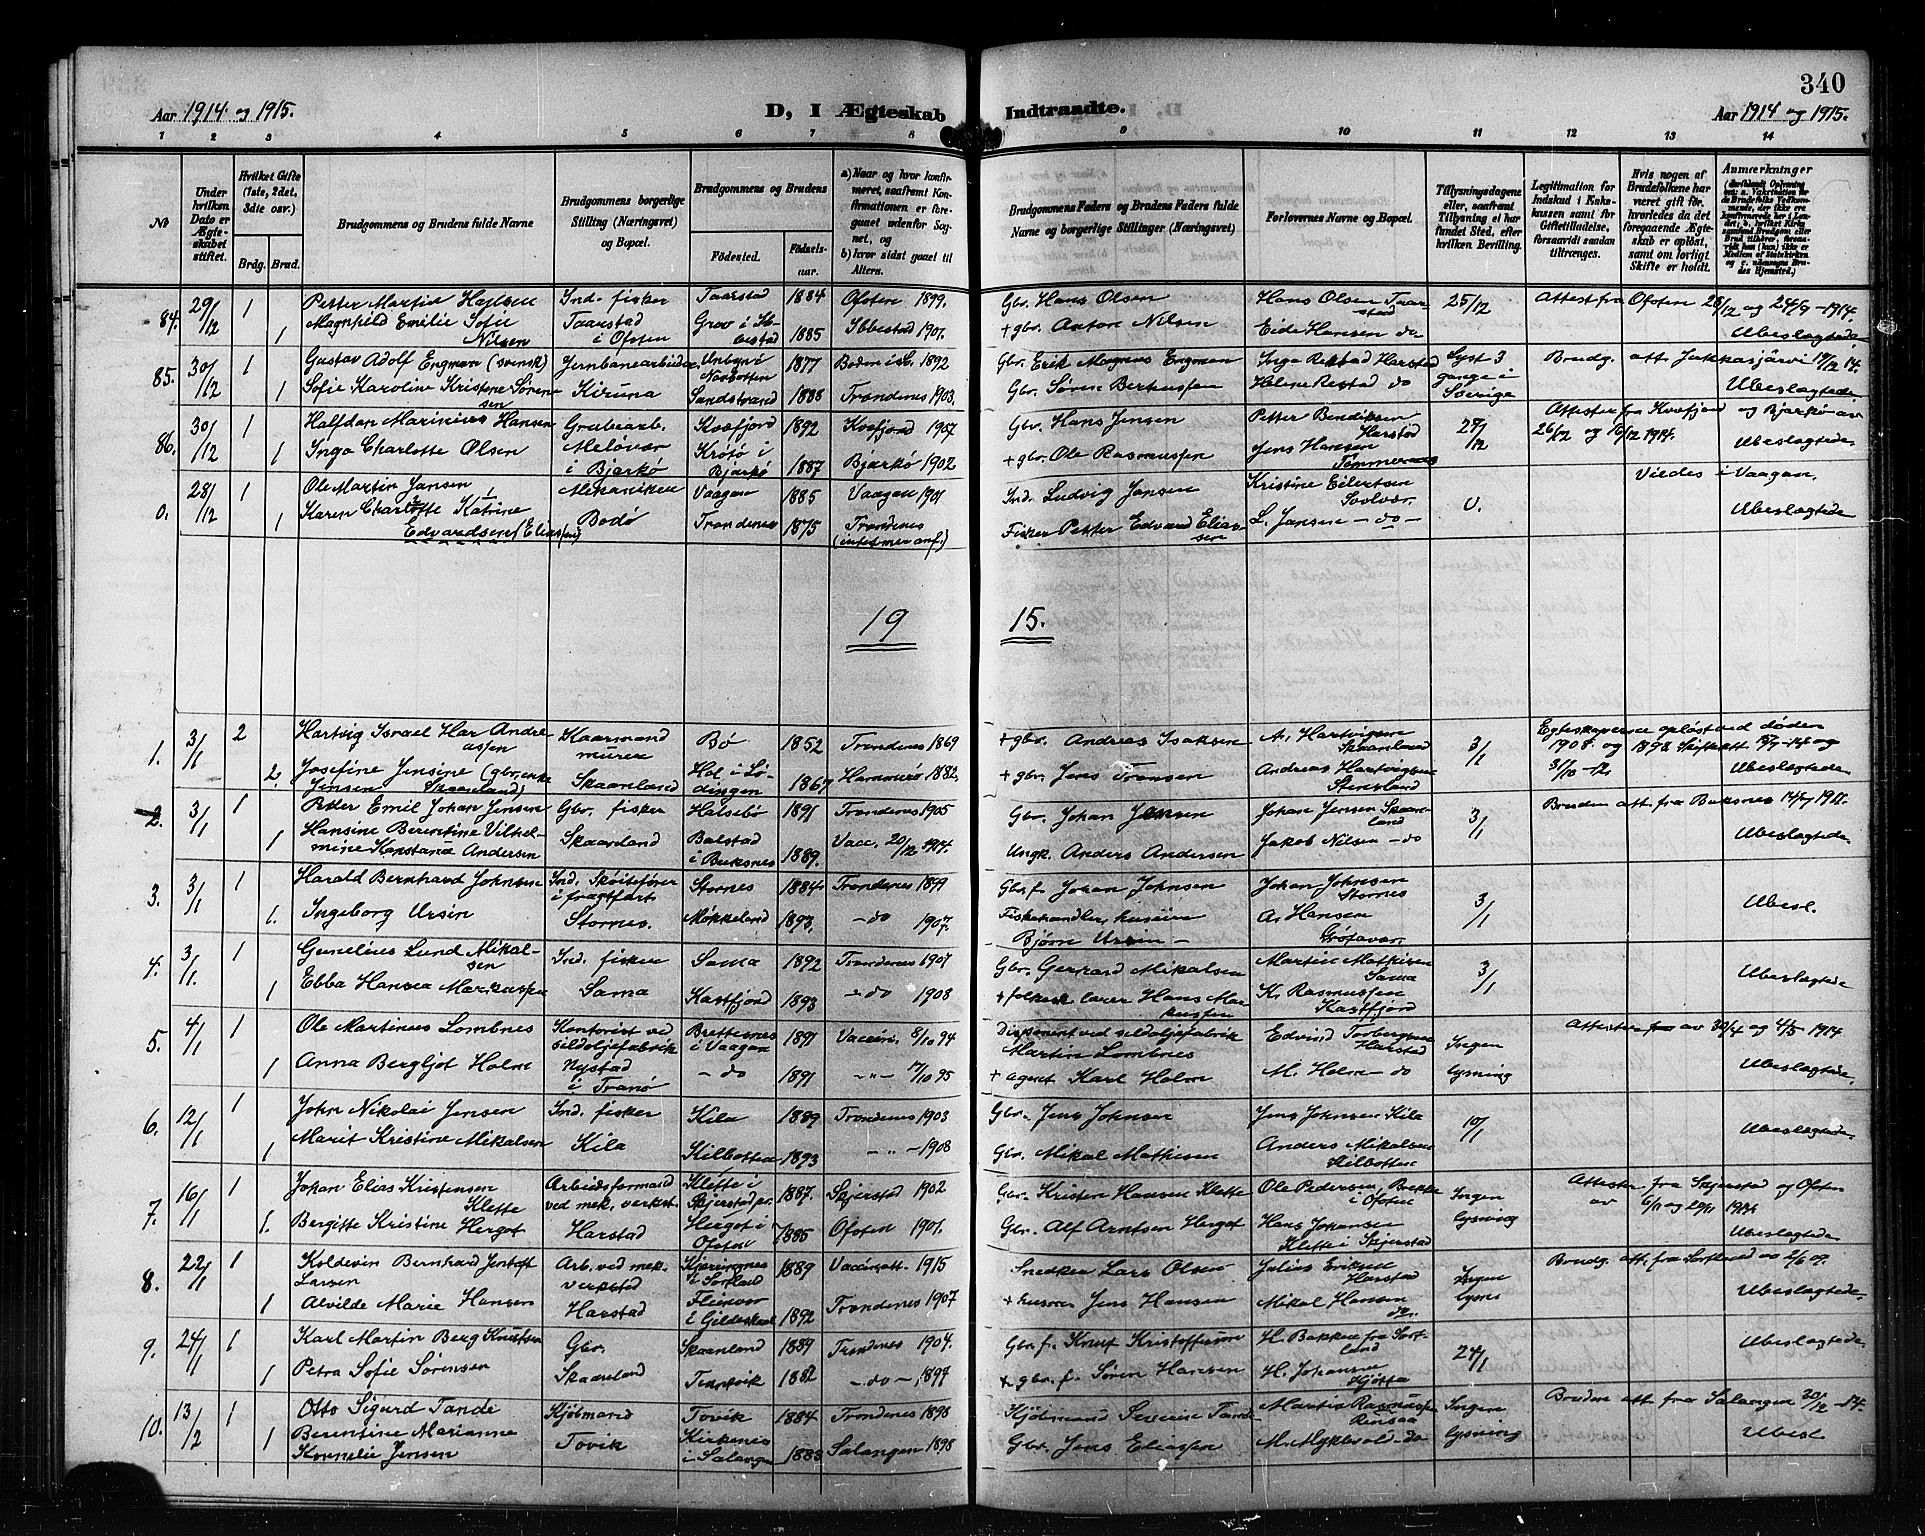 340
Aar 1914 og 1915.
D, I Ægteskab Indtraadte.
Aar 1914 og 1915.
1 2 3 4 5 6 7 8 9 10 11 12 13 14
No
Under hvilken Dato er Ægteskabet stiftet.
Hvilket Gifte (1ste, 2det, 3die osv.)
Brdg. Brud.
Brudgommens og Brudens fulde Navne
Brudgommens borgerlige Stilling (Næringsvei) og Bopæl.
Brudgommens og Brudens
Födested. Födselsaar.
a) Naar og hvor konfirmeret, saafremt Konfirmationen er foregaaet udenfor Sognet, og b) hvor sidst gaaet til Alters.
Brudgommens Faders og Brudens Faders fulde Navne og borgerlige Stillinger (Næringsvei)
Forlovernes Navne og Bopæl.
Tillysningsdagene eller, saafremt Tillysning ei har fundet Sted, efter hvilken Bevilling.
Legitimation for Indskud i Enkekassen samt for Giftetilladelse, forsaavidt saadan tiltrænges.
Hvis nogen af Brudefolkene har været gift för, hvorledes da det foregaaende Ægteskab er oplöst, samt om lovligt Skifte er holdt.
Anmærkninger
84. 29/12 1 Petter Martin Hansen Ind. fisker Taarstad 1884 Ofoten 1899. Gbr. Hans Olsen Hans Olsen Taarstad 25/12 Attest fra Ofoten 28/12 og 24/9 - 1914.
1 Magnhild Emilie Sofie Nilsen Taarstad i Ofoten Grov i Ibbestad 1885 Ibbestad 1901. + gbr. Anton Nilsen Eide Hansen do Ubeslagtede
85. 30/12 1 Gustav Adolf Engman (svensk) Jernbanearbeider 1877 Boden i S. 1892 Gbr. Erik Magnus Engman Inga Rekstad Harstad Lyst 3 gange i Sverige Brudg. att. Jukkasjärvi 19/12 14.
1 Sofie Karoline Kristine Sørensen Kiruna Sandstrand 1888 Trondenes 1903. Gbr. Søren Berteussen Helene Rekstad do Ubeslagtede
86. 30/12 1 Halfdan Marinius Hansen Grubearb. Kvæfjord 1892 Kvæfjord 1907 Gbr. Hans Jensen Petter Bendiksen Harstad 27/12 Attester fra Kvæfjord og Bjarkø av 26/12 og 16/12 1914.
1 Inga Charlotte Olsen Meløvær i Bjarkø Krøtø i Bjarkø 1887 Bjarkø 1902 + gbr. Ole Rasmussen Jens Hansen Ubeslagtede
0. 28/12 1 Ole Martin Jansen Mekaniker Vaagan 1885 Vaagan 1901 Ind. Ludvig Jansen Kristine Eilertsen Svolvær 0. Viedes i Vaagan.
1 Karen Charlotte Katrine Edvardsen (Eliassen) Bodø Trondenes 1875 Trondenes (intet mer anf.) Fisker Petter Edvard Eliassen L. Jansen - do - Ubeslagtede
19 15.
1. 3/1 2 Hartvig Israel Har Andreassen Kaarmand murer Bø 1852 Trondenes 1869 + gbr. Andreas Isaksen A. Hartvigsen Skaanland 3/1 Egteskaperne opløst ved døden 1908 og 1898
2. Josefine Jensine Jensen (gbr. enke Skaanland) Skaanland Hol i Lødingen 1867 Hammerø 1882. + gbr. Jens Transen Andreas Hartvigsen Stensland 31/10 - 12. Ubeslagtede
2. 3/1 1 Peder Emil Johan Jensen Gbr. fisker Halsebø 1891 Trondenes 1905 Gbr. Johan Jensen Johan Jensen Skaanland 3/1 Bruden att. fra Buksnes
1 Hansine Berentine Vilhelmine Konstanse Andersen Skaanland Balstad i Buksnes 1889. Vacc. 20/12 1914. Ungk. Anders Andersen Jakob Nilsen - do Ubeslagtede
3. 3/1 1 Harald Bernhard Johnsen Ind. Skøitefører i fragtfart. Stornes 1884 Trondenes 1899 Gbr. f. Johan Johnsen Johan Johnsen Stornes 3/1
1. Ingeborg Ursin Stornes. Møkkeland 1893. - do 1907. Fiskehandler, Bjørn Ursin - A. Hansen Grøtavær. Ubesl.
4. 3/1. 1 Gunelius Lund Mikalsen Ind. fisker Sama 1892 Trondenes 1907 Gbr. Gerhard Mikalsen Martin Mathisen Sama 3/1
1 Ebba Hansea Markussen Sama Kasfjord 1893 - do 1908 + folkesk. lærer Hans Markussen K. Rasmussen Kasfjord Ubeslagtede
5. 4/1 1 Ole Martinus Lombnes Kontorist ved sildoljefabrik Brettesnes i Vaagan 1891 Vaccin. 8/10 94 Disponent ved sildoljefabrik Martin Lombnes Edvind Torbergsen Harstad Ingen lysning Attester av 30/4 og 4/5 1914
1 Anna Bergljot Holm Nystad i Tranø - do 1891 -"- 7/10 95 + agent Karl Holm M. Holm - do Ubeslagtede.
6. 12/1 1 John Nikolai Jensen Ind. fisker Kila 1889 Trondenes 1903 Gbr. Jens Johnsen Jens Johnsen Kila 10/1
1 Marit Kristine Mikalsen Kila Kilbotten 1893 -"- 1908 Gbr. Mikal Mathisen Anders Mikalsen Kilbotten Ubeslagtede
7. 16/1 1 Johan Elias Kristensen Klette Arbeidsformand ved mek. verkst. Klette i Skjerstad 1887. Skjerstad 1902 Gbr. Kristen Hansen Klette Ole Pedersen, Bakke i Ofoten Ingen lysning Attester fra Skjerstad og Ofoten av 6/11 og 29/11 1914
1. Bergitte Kristine Hergot Harstad Hergot i Ofoten 1885 Ofoten 1901. Gbr. Alf Arntsen Hergot Hans Johansen Klette i Skjerstad Ubeslagtede
8. 22/1 1 Koldevin Bernhard Jentoft Larsen Arb. ved mek. verksted Kjeringnes i Sortland 1889 Vaccinatt. 1915 Snedker Lars Olsen Julius Eriksen Harstad Ingen lysn. Brudg. att. fra Sortland 2/6 09.
1 Alvilde Marie Hansen Harstad i Gildeskaal 1892 Trondenes 1907 + husm. Jens Hansen Mikal Hansen do. Ubeslagtede.
9. 24/1 1 Karl Martin Berg Knutsen Gbr. Skaanland 1889 Trondenes 1904. Gbr. f. Knut Kristoffersen H. Bakken fra Sortland 24/1
1 Petra Sofie Sørensen Skaanland 1882 - do - 1897 + gbr. f. Søren Hansen H. Johansen Ubeslagtede.
10. 13/2 1 Otto Sigurd Tande Kjøbmand Tovik 1884 Trondenes 1898 Kjøbmand Severin Tande Martin Rasmussen Ingen lysning Bruden att. fra Salangen 30/12 - 14.
1 Berentine Marianne Kornelie Jensen Tovik Kirkenes i Salangen 1883 Salangen 1898 Gbr. Jens Eliassen M. Myklevold - do Ubesl